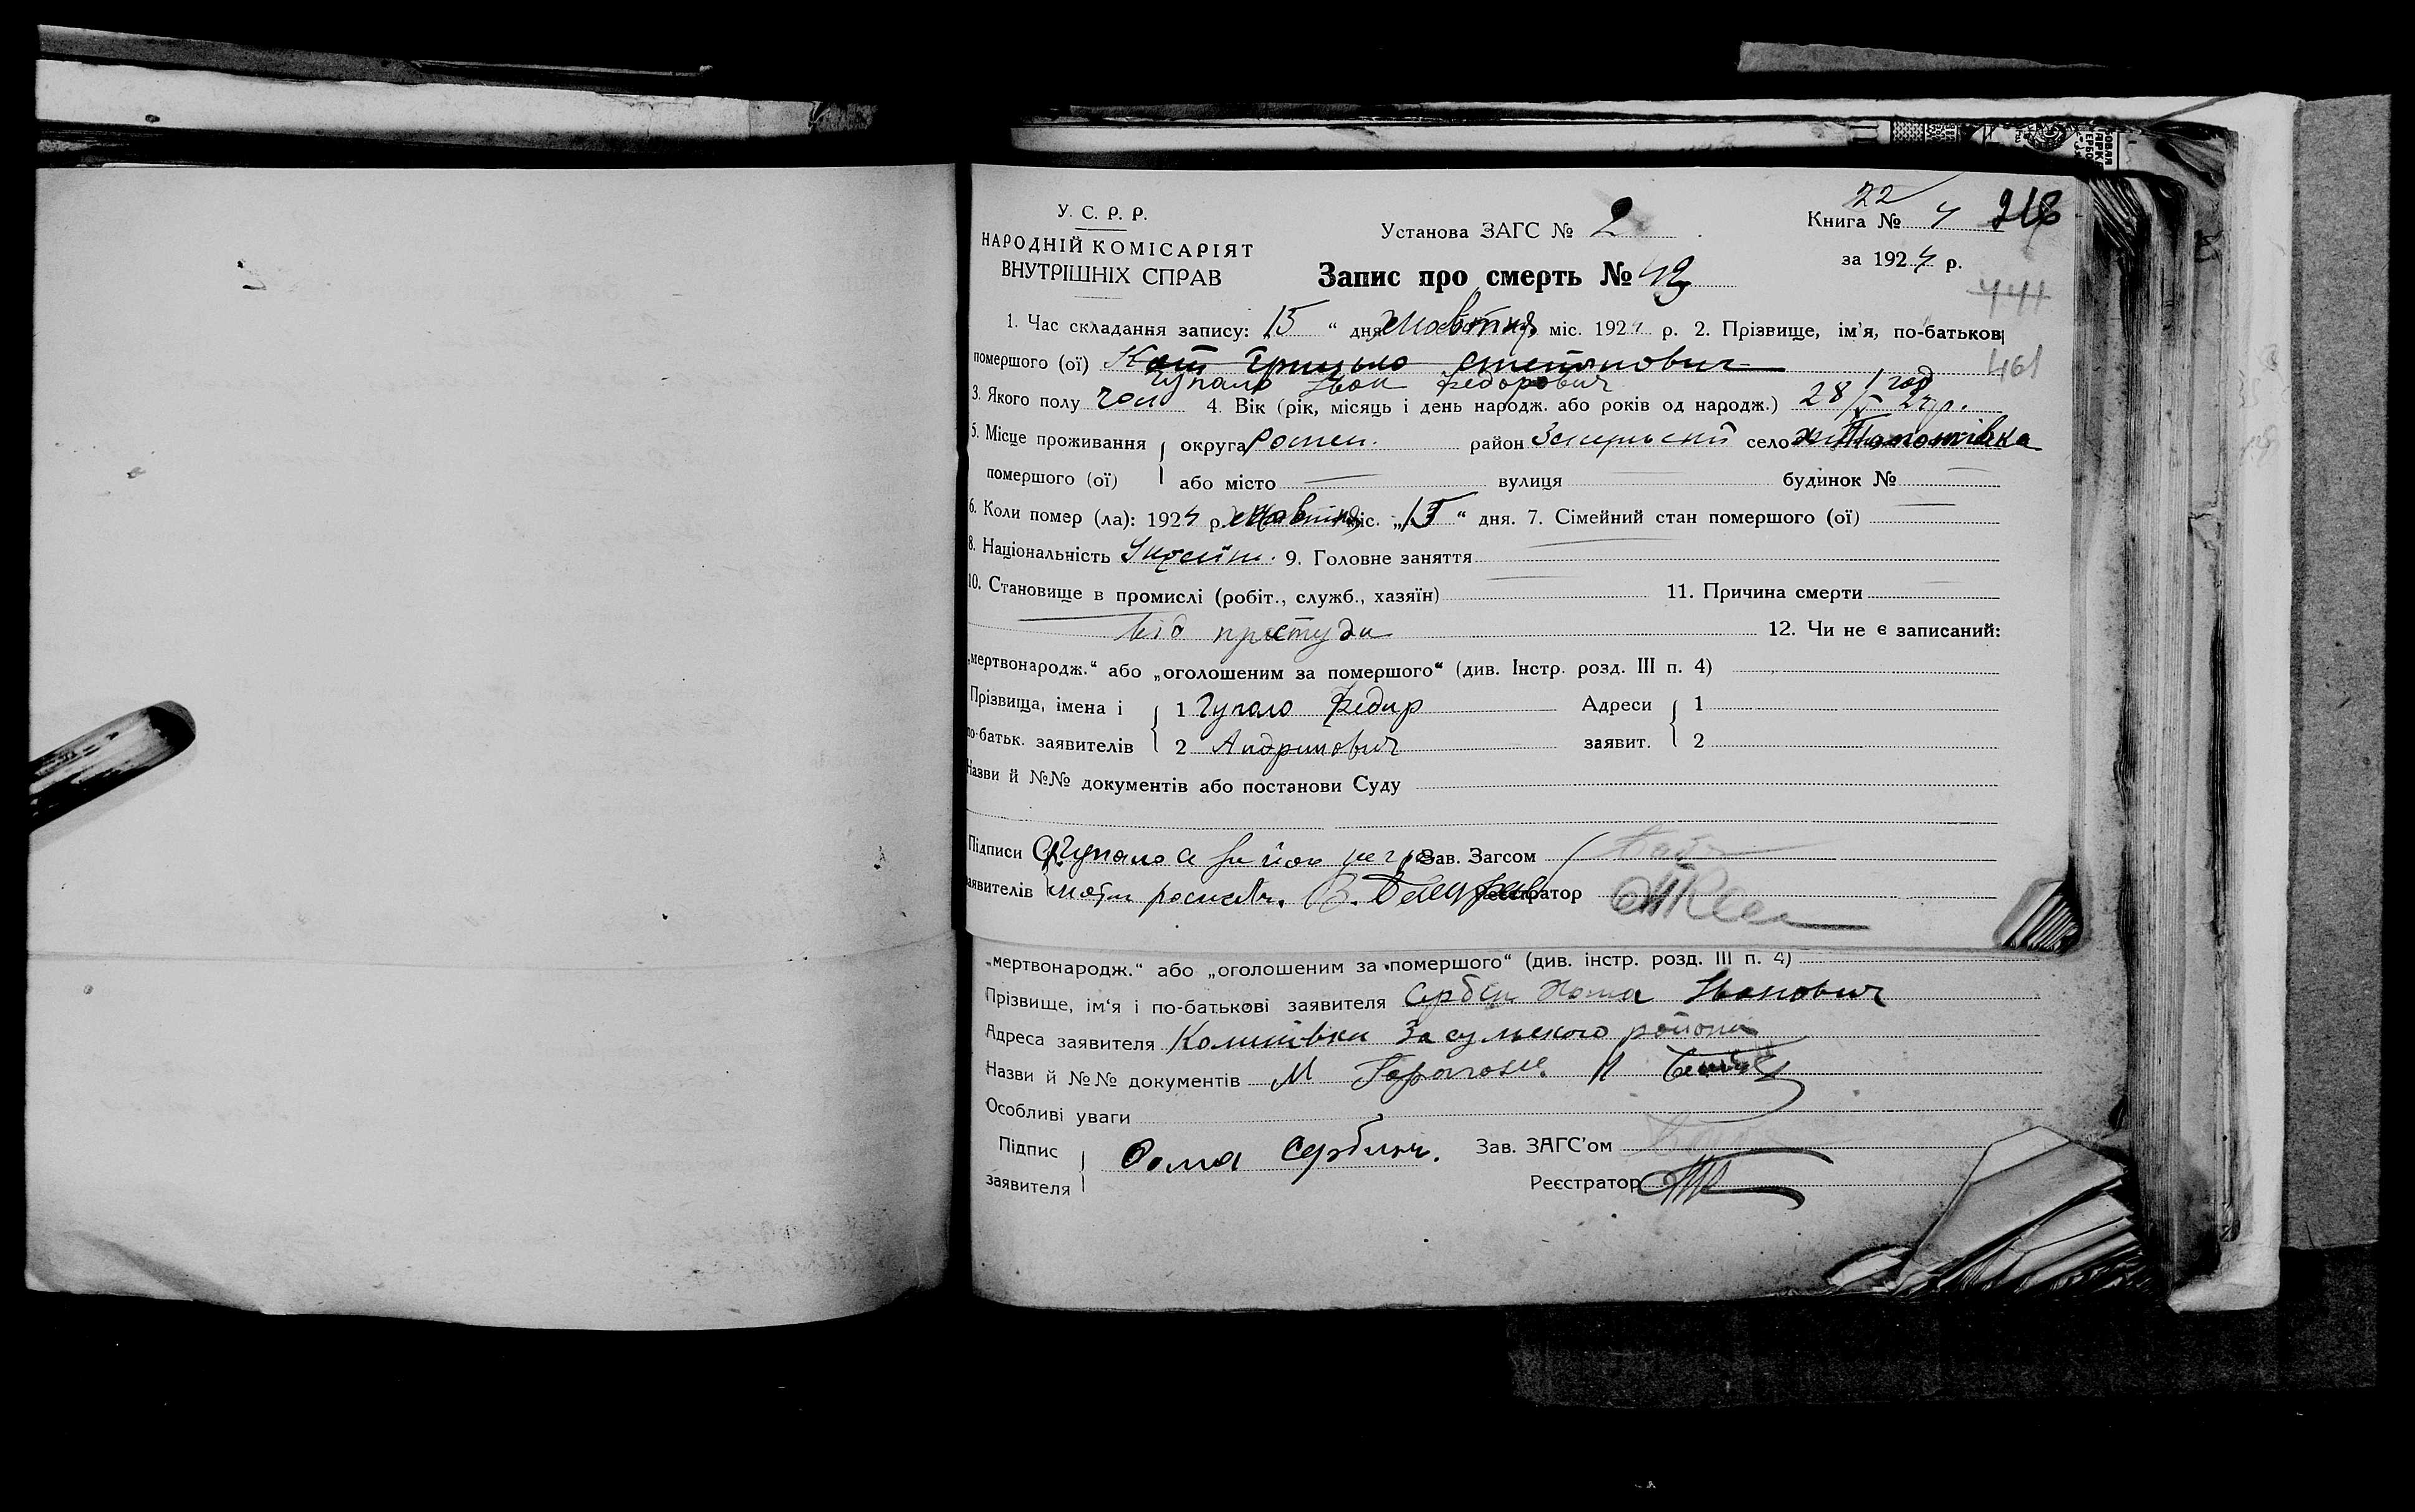 У. С. Р. Р.
НАРОДНІЙ КОМІСАРІЯТ
ВНУТРІШНІХ СПРАВ
Установа ЗАГС № 2
Запис про смерть № 43
22
Книга № 4 218
за 1924 р.
441
1. Час складання запису: 15 " дня Жовтня міс. 1924 р. 2. Прізвище, ім'я, по-батькові
помершого (ої) Кот Грицько Степанович
461
Чупало Іван Федорович
3. Якого полу чол 4. Вік (рік, місяць і день народж. або років од народж.) 28/V 24 р. 1 год
5. Місце проживання { округа Ромен. район Засульский село
помершого (ої) або місто — вулиця — будинок № —
6. Коли помер (ла): 1924 р. Жовтня міс. „15" дня. 7. Сімейний стан помершого (ої) —
8. Національність Україн. 9. Головне заняття —
10. Становище в промислі (робіт., служб., хазяїн) — 11. Причина смерти —
від простуди 12. Чи не є записаний:
„мертвонародж." або „оголошеним за помершого" (див. Інстр. розд. III п. 4)
Прізвища, імена і { 1 Чупало Федир Адреси { 1
по-батьк. заявителів 2 Андриянович заявит. 2
Назви й №№ документів або постанови Суду
Підписи Чупало а за його негра Зав. Загсом
заявителів мотн росписавсь. В. Реєстратор
„мертвонародж." або „оголошеним за помершого" (див. інстр. розд. III п. 4)
Прізвище, ім'я і по-батькові заявителя Сербин Хома Іванович
Адреса заявителя Колишівка Засульского района
Назви й №№ документів М
Особливі уваги
Підпис Фома Сербин. Зав. ЗАГС'ом
заявителя Реєстратор